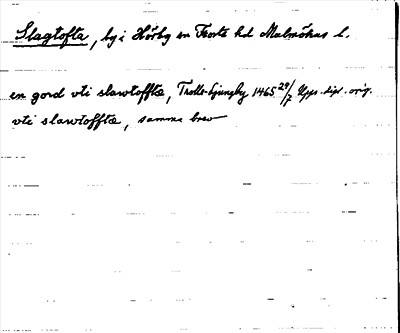 Slagtofta, by i Hörby sn Frosta hd Malmöhus l.
en gord vti slawtofftæ, Trolle-Ljungby 1465 29/7 Upps. dipl. orig.
vti slawtofftæ, samma brev